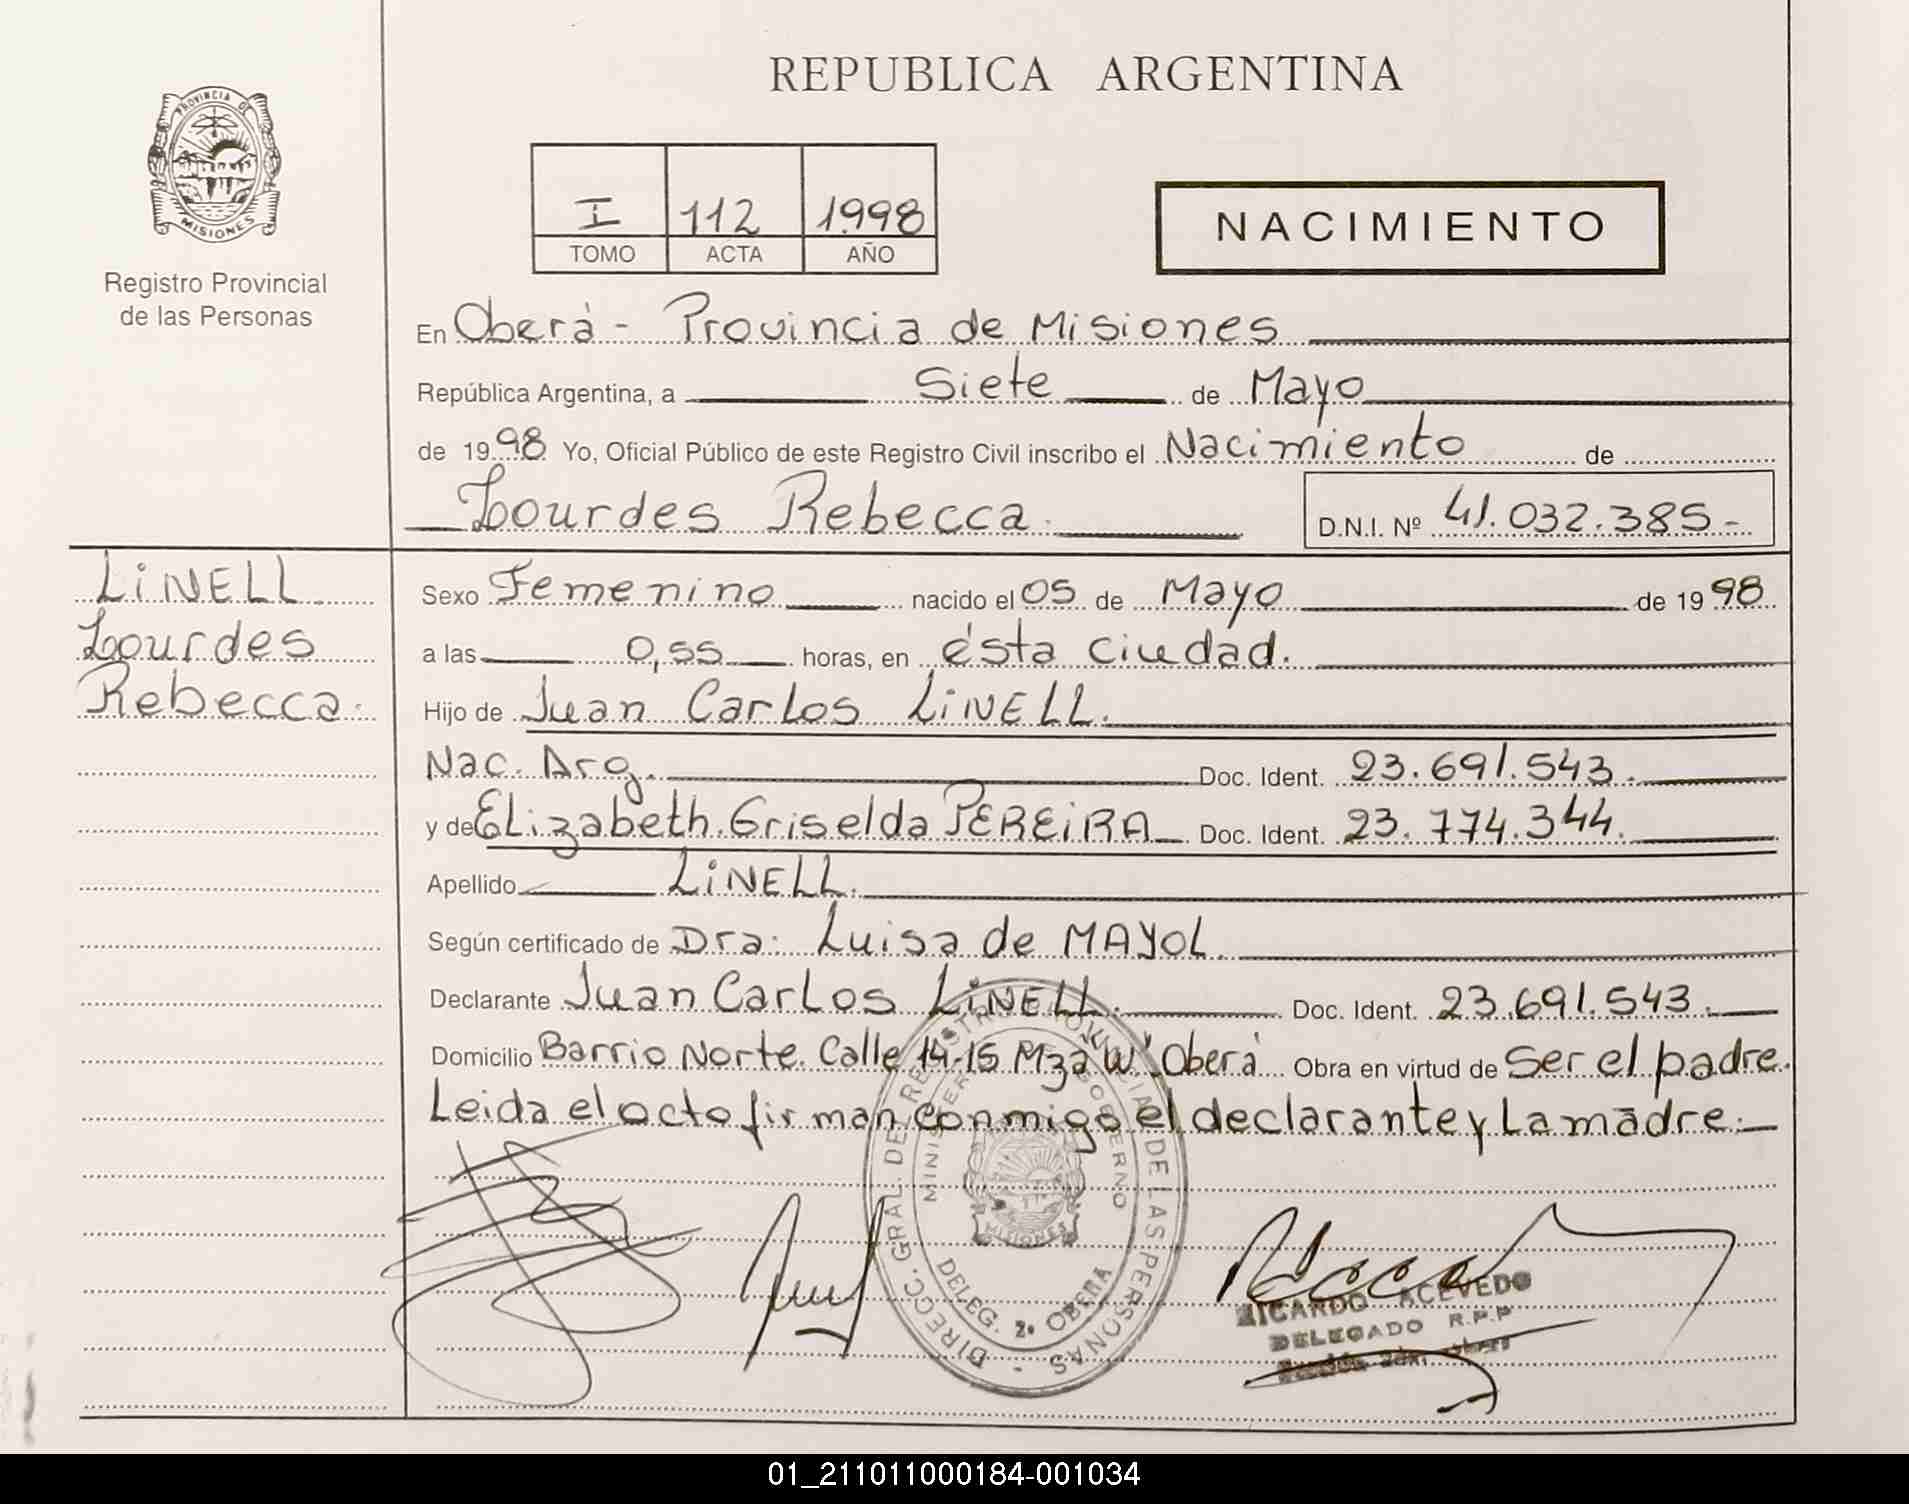 REPUBLICA ARGENTINA
PROVINCIA DE
MISIONES
Registro Provincial
de las Personas
I 112 1.998
TOMO ACTA AÑO
NACIMIENTO
En Oberá - Provincia de Misiones
República Argentina, a Siete de Mayo
de 1998 Yo, Oficial Público de este Registro Civil inscribo el Nacimiento de
Lourdes Rebecca. D.N.I. Nº 41.032.385.-
LiNELL
Lourdes
Rebecca.
Sexo Femenino nacido el 05 de Mayo de 1998
a las 0,55 horas, en ésta ciudad.
Hijo de Juan Carlos LiNELL.
Nac. Arg. Doc. Ident. 23.691.543.
y de Elizabeth Griselda PEREiRA Doc. Ident. 23.774.344.
Apellido LiNELL.
Según certificado de Dra: Luisa de MAYOL.
Declarante Juan Carlos LiNELL. Doc. Ident. 23.691.543.
Domicilio Barrio Norte. Calle 14-15 Mza "W". Oberá Obra en virtud de Ser el padre.
Leida el acto firman conmigo el declarante y La madre.
DIRECC. GRAL. DEL REGISTRO PROVINCIAL DE LAS PERSONAS -
MINISTERIO GOBIERNO
MISIONES
DELEG. 2ª OBERA
RICARDO ACEVEDO
DELEGADO R.P.P
01_211011000184-001034